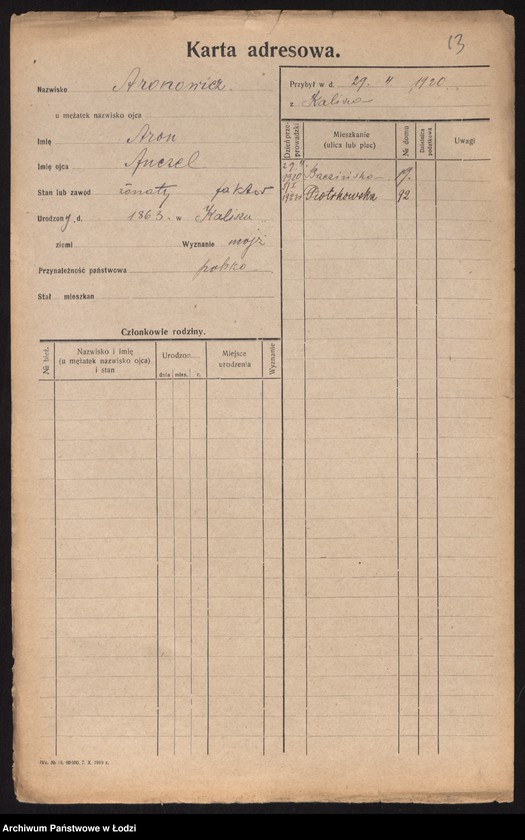 13
Karta adresowa.
Nazwisko Aronowicz.
u mężatek nazwisko ojca
Imię Aron
Imię ojca Anczel
Stan lub zawód żonaty faktor
Urodzony d. 1863 w Kaliszu
ziemi Wyznanie mojż
Przynależność państwowa polska
Stał. mieszkan
Członkowie rodziny.
№ bież.
Nazwisko i imię
(u mężatek nazwisko ojca)
i stan
Urodzon
dnia mies. r.
Miejsce
urodzenia
Wyznanie
Przybył w d. 29 4 1920
z Kalisza
Dzień przeprowadzki
Mieszkanie
(ulica lub plac)
№ domu
Dzielnica
podatkowa
Uwagi
29 4
1920 19.
1921 Piotrkowska 92
Archiwum Państwowe w Łodzi